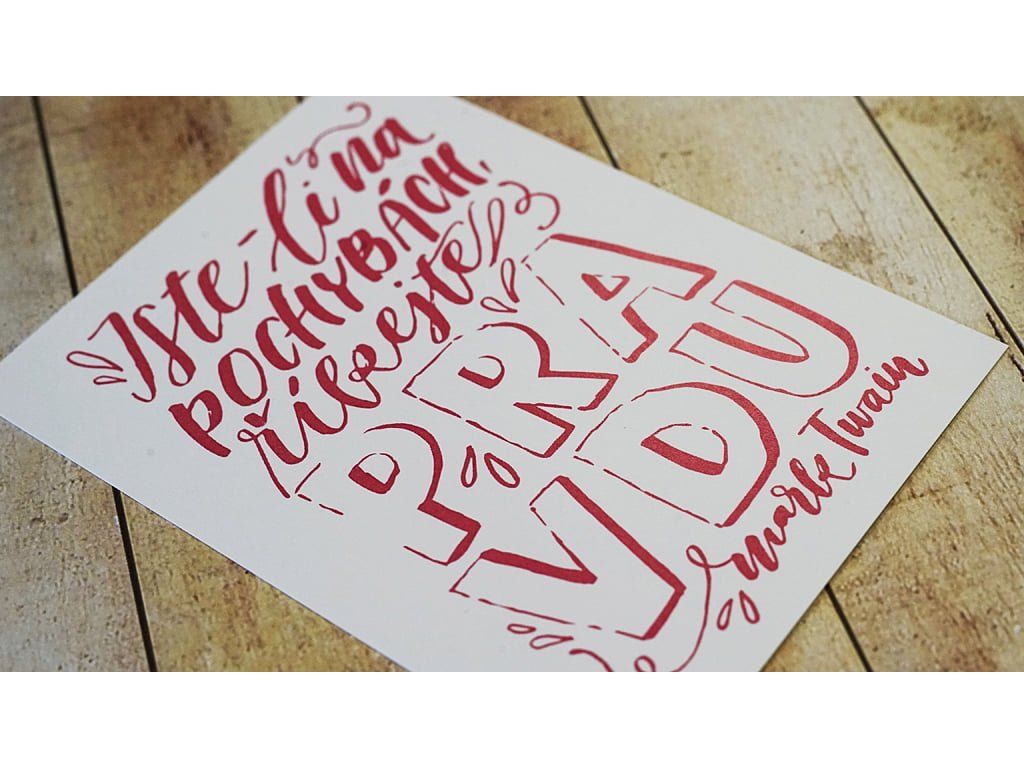 Jste-li na
POCHYBÁCH,
říkejte
PRA
VDU
Mark Twain